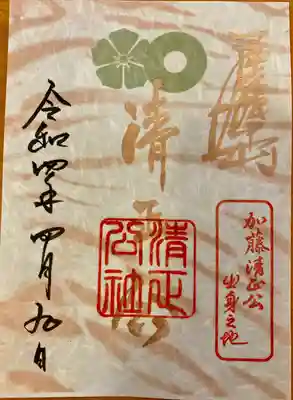 加藤清正公
出身之地
清正公
清正
公社
令和四年四月九日